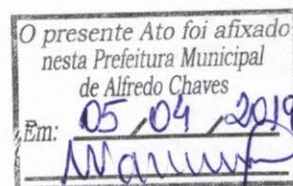 O presente Ato foi afixado
nesta Prefeitura Municipal
de Alfredo Chaves
Em: 05/04/2019